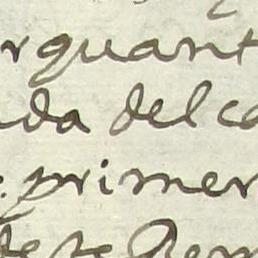 r quant
da del co
primer